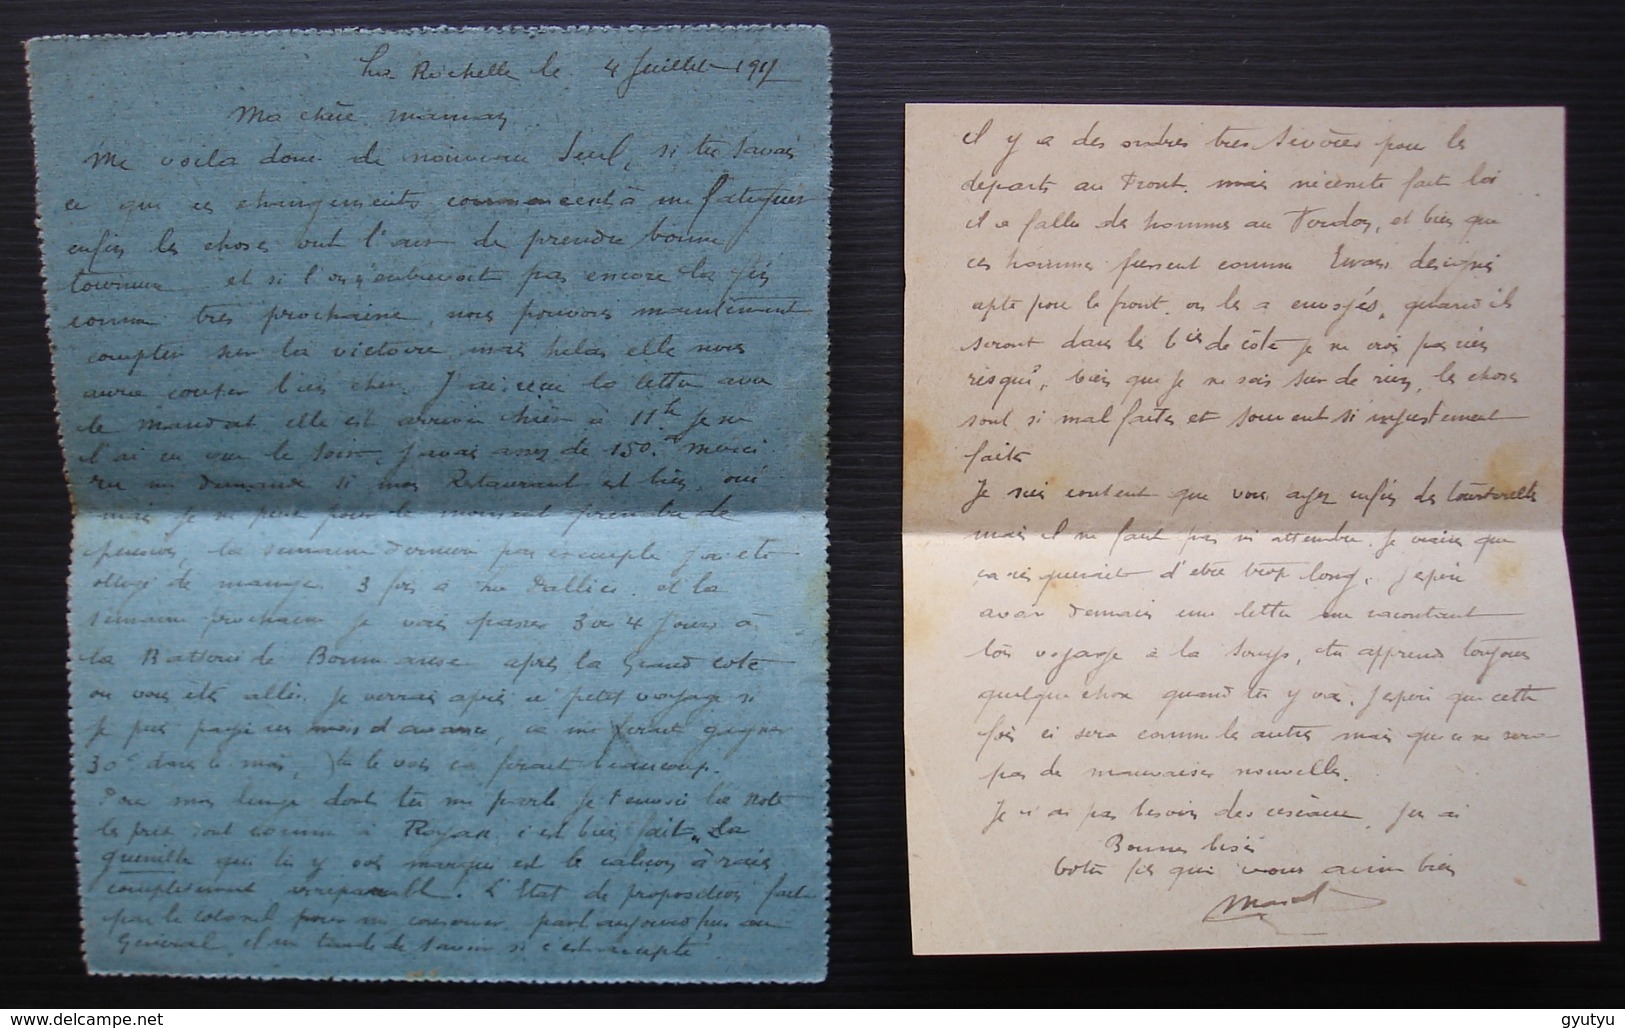 La Rochelle le 4 Juillet 1917
Ma chère maman,
Me voila donc de nouveau seul, si tu savais
ce que ces changements commencent à me fatiguer
enfin les choses ont l'air de prendre bonne
tournure et si l'on n'entrevoit pas encore la fin
comme très prochaine, nous pouvons maintenant
compter sur la victoire, mais helas elle nous
aura couter bien cher. J'ai reçu la lettre avec
le mandat elle est arrivée hièr à 11h je ne
l'ai eu que le soir, J'avais assez de 150. merci
Tu me demande si mon Restaurant est bien, oui
mais je ne peut pour le moment prendre de
pension, la semaine dernière par exemple j'ai été
obligé de manger 3 fois à La Pallice. et la
semaine prochaine je vais passer 3 ou 4 jours à
la Batterie de Bonne anse après la Grand cote
ou vous êtes allés. Je verrai après ce petit voyage si
je puis payer un mois d'avance, ca me ferait gagner
30f dans le mois, tu le vois ca ferait beaucoup.
Pour mon linge dont tu me parle, je t'envoie la note
les prix sont comme à Royan, c'est bien fait. La
guenille que tu y vois marqué est le caleçon à raies
complètement irréparable. L'Etat de proposition fait
par le colonel pour me concerner, part aujourd'hui au
Général et me tarde de savoir si c'est accepté.
il y a des ordres très sévères pour les
départs au Front. mais nécessité fait loi
il a fallu des hommes au , et bien que
ces hommes fussent comme désignés
apte pour le front. on les a envoyés, quand ils
seront dans les bies de côte je ne crois pas rien
risquer, bien que je ne sois sûr de rien, les choses
sont si mal faites et souvent si injustement
faites
Je suis content que vous ayez enfin des tourterelles
mais il ne faut pas m'attendre. Je crains que
ca risquerait d'etre trop long. J'espère
avoir demain une lettre me racontant
ton voyage à la , tu apprends toujours
quelque chose quand tu y vas. J'espère que cette
fois ci sera comme les autres mais que ce ne sera
pas de mauvaises nouvelles.
Je n'ai pas besoin des ciseaux, j'en ai
Bonnes bises
votre fils qui vous aime bien
Marcel
gyutyu